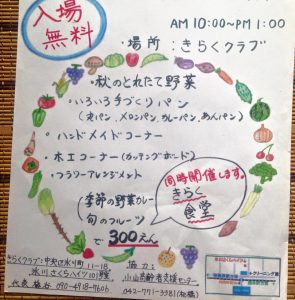 入場
無料
AM 10:00~PM 1:00
・場所：きらくクラブ
・秋のとれたて野菜
・いろいろ手づくりパン
(食パン、メロンパン、カレーパン、あんパン)
・ハンドメイドコーナー
・木工コーナー(カッティングボード)
・フラワーアレンジメント
同時開催します。
きらく
食堂
季節の野菜カレー
旬のフルーツ
で300えん
きらくクラブ:中央区氷川町11-18
氷川さくらハイツ101号室
協力：
小山高齢者支援センター